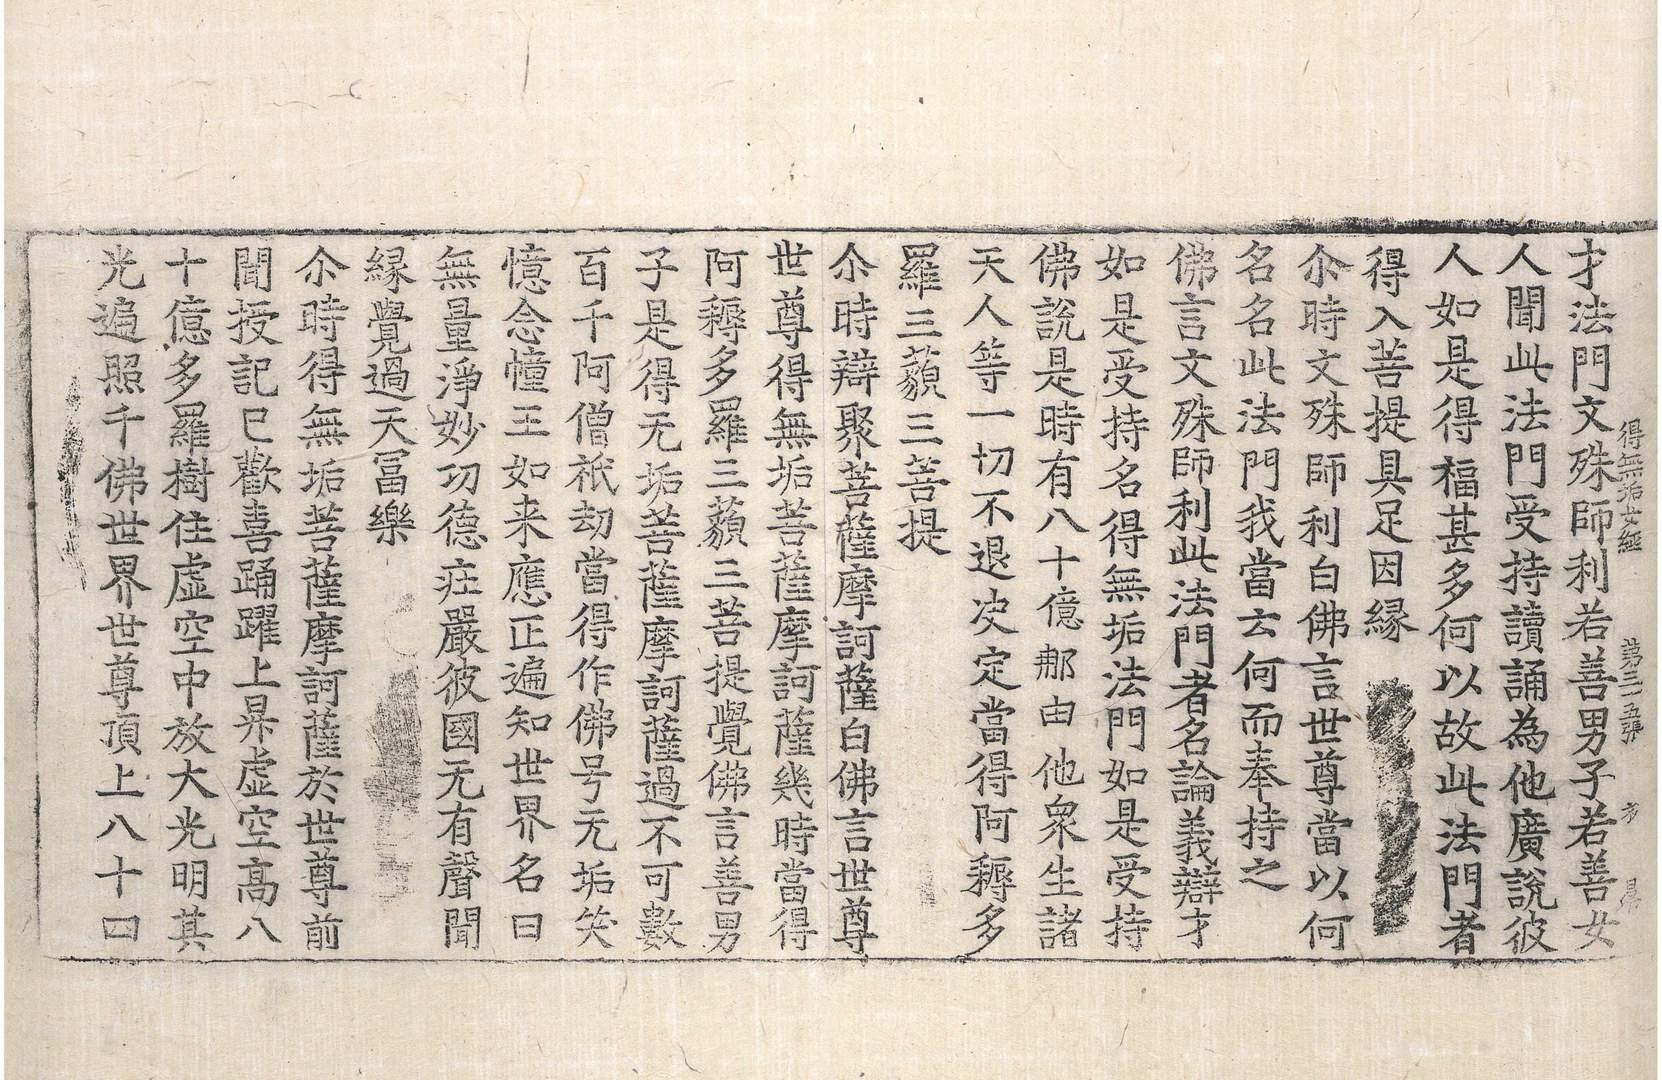 得無垢女經 第三一五張
才法門文殊師利若善男子若善女
人聞此法門受持讀誦為他廣說彼
人如是得福甚多何以故此法門者
得入菩提具足因縁
尒時文殊師利白佛言世尊當以何
名名此法門我當云何而奉持之
佛言文殊師利此法門者名論義辯才
如是受持名得無垢法門如是受持
佛說是時有八十億那由他衆生諸
天人等一切不退决定當得阿耨多
羅三藐三菩提
尒時辯聚菩薩摩訶薩白佛言世尊
世尊得無垢菩薩摩訶薩幾時當得
阿耨多羅三藐三菩提覺佛言善男
子是得无垢菩薩摩訶薩過不可數
百千阿僧祇劫當得作佛号无垢笑
憶念幢王如来應正遍知世界名曰
無量淨妙功德莊嚴彼國无有聲聞
縁覺過天冨樂
尒時得無垢菩薩摩訶薩於世尊前
聞授記已歡喜踊躍上昇虚空髙八
十億多羅樹住虚空中放大光明其
光遍照千佛世界世尊頂上八十四